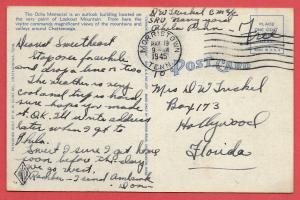 The Ochs Memorial is an outlook building located on
the very point of Lookout Mountain. From here the
visitor commands magnificent views of the mountains and
valleys around Chattanooga.
D W Truskel C M 3/c
SRU Navy yard
Phila Penn -
Free
MORRISTOWN
MAY 19
1945
TENN.
PLACE
ONE CENT
STAMP
HERE
POST CARD
Dearest Sweetheart
Stop one few while
and drop a line on too.
The weather is very
cool and pretty hard,
sure hope you made
it OK. Ill write address
later when I get to
Phila.
Sweet I sure I get home
soon before this Navy
we go west.
Rather - I send Am back
Don
Mrs D W Truskel
Box 173
Hollywood
Florida